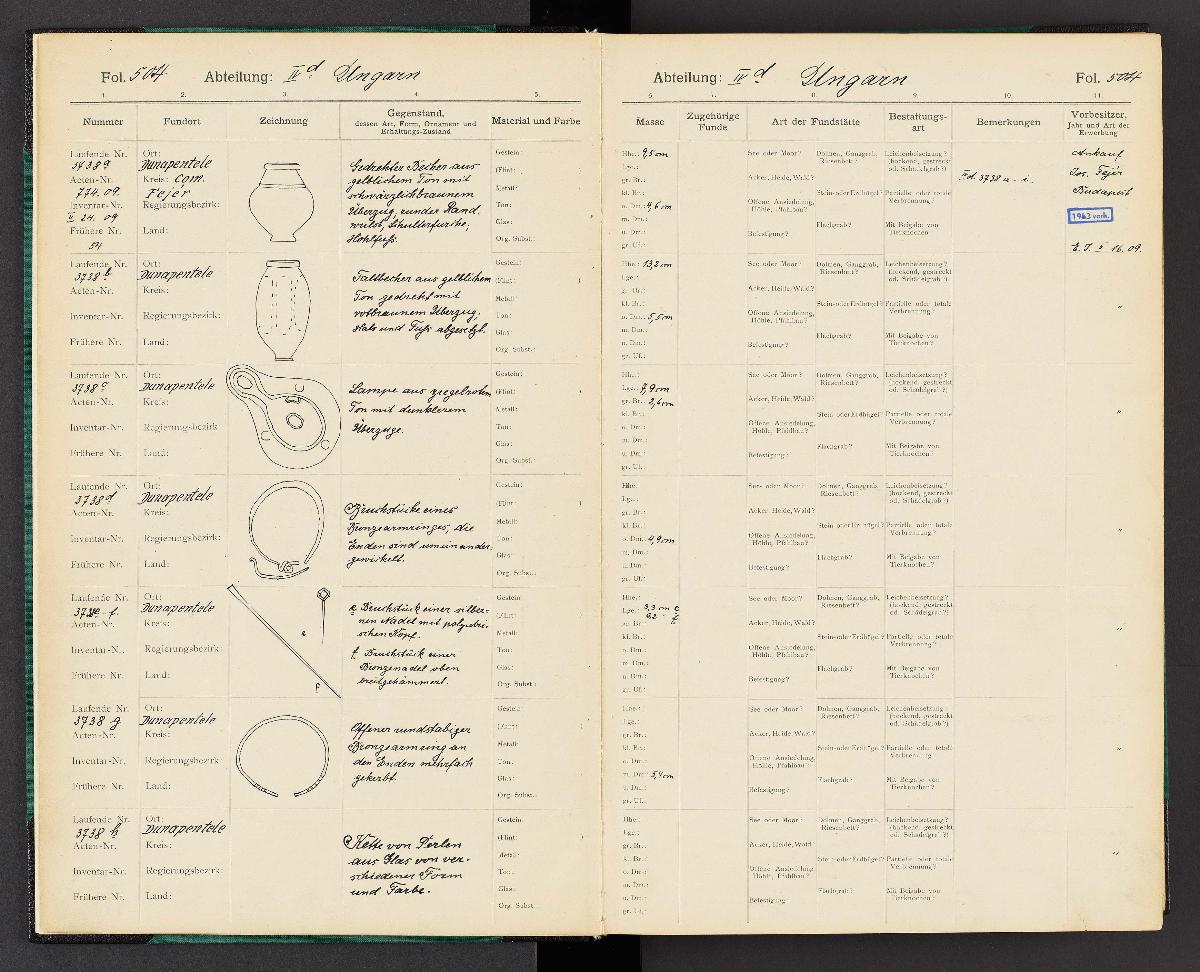 Fol. 504 Abteilung: IV d Ungarn
1. 2. 3. 4. 5.
Nummer Fundort Zeichnung Gegenstand, dessen Art, Form, Ornament und Erhaltungs-Zustand Material und Farbe
Laufende Nr. 3738 a
Acten-Nr. 774. 09.
Inventar-Nr. II 24. 09
Frühere Nr.
Ort: Dunapentele
Kreis: Com. Fejér
Regierungsbezirk:
Land:
Gedrehter Becher aus
gelblichem Ton mit
schwärzlichbraunem
Überzug, runder Rand-
wulst, Schulterfurche,
Hohlfuss.
Gestein:
(Flint: )
Metall:
Ton:
Glas:
Org. Subst.:
Laufende Nr. 3738 b
Acten-Nr.
Inventar-Nr.
Frühere Nr.
Ort: Dunapentele
Kreis:
Regierungsbezirk:
Land:
Faltbecher aus gelblichem
Ton gedreht mit
rotbraunem Überzug,
Hals und Fuss abgesetzt.
Gestein:
(Flint: )
Metall:
Ton:
Glas:
Org. Subst.:
Laufende Nr. 3738 c
Acten-Nr.
Inventar-Nr.
Frühere Nr.
Ort: Dunapentele
Kreis:
Regierungsbezirk:
Land:
Lampe aus ziegelrotem
Ton mit dunklerem
Überzuge.
Gestein:
(Flint: )
Metall:
Ton:
Glas:
Org. Subst.:
Laufende Nr. 3738 d
Acten-Nr.
Inventar-Nr.
Frühere Nr.
Ort: Dunapentele
Kreis:
Regierungsbezirk:
Land:
Bruchstücke eines
Bronzearmringes, die
Enden sind umeinander
gewickelt.
Gestein:
(Flint: )
Metall:
Ton:
Glas:
Org. Subst.:
Laufende Nr. 3738 e-f.
Acten-Nr.
Inventar-Nr.
Frühere Nr.
Ort: Dunapentele
Kreis:
Regierungsbezirk:
Land:
e
f
e Bruchstück einer silber-
nen Nadel mit polyedri-
schen Kopf.
f Bruchstück einer
Bronzenadel oben
breitgehämmert.
Gestein:
(Flint: )
Metall:
Ton:
Glas:
Org. Subst.:
Laufende Nr. 3738 g
Acten-Nr.
Inventar-Nr.
Frühere Nr.
Ort: Dunapentele
Kreis:
Regierungsbezirk:
Land:
Offener rundstabiger
Bronzearmring an
den Enden mehrfach
gekerbt.
Gestein:
(Flint: )
Metall:
Ton:
Glas:
Org. Subst.:
Laufende Nr. 3738 h
Acten-Nr.
Inventar-Nr.
Frühere Nr.
Ort: Dunapentele
Kreis:
Regierungsbezirk:
Land:
Kette von Perlen
aus Glas von ver-
schiedener Form
und Farbe.
Gestein:
(Flint: )
Metall:
Ton:
Glas:
Org. Subst.:
Abteilung: IV d Ungarn Fol. 504
6. 7. 8. 9. 10. 11.
Masse Zugehörige Funde Art der Fundstätte Bestattungs-art Bemerkungen Vorbesitzer, Jahr und Art der Erwerbung
Hhe.: 9,5 cm
Lge.:
gr. Br.:
kl. Br.:
o. Dm.: 4,6 cm
m. Dm.:
u. Dm.:
gr. Uf.:
See oder Moor? Dolmen, Ganggrab, Riesenbett?
Acker, Heide, Wald?
Stein- oder Erdhügel?
Offene Ansiedelung, Höhle, Pfahlbau?
Flachgrab?
Befestigung?
Leichenbeisetzung? (hockend, gestreckt od. Schädelgrab?)
Partielle oder totale Verbrennung?
Mit Beigabe von Tierknochen?
Fd. 3738 a - i.
Ankauf
Jos. Fejér
Budapest
1963 vorh.
Hhe.: 13,2 cm
Lge.:
gr. Br.:
kl. Br.:
o. Dm.: 5,5 cm
m. Dm.:
u. Dm.:
gr. Uf.:
See oder Moor? Dolmen, Ganggrab, Riesenbett?
Acker, Heide, Wald?
Stein- oder Erdhügel?
Offene Ansiedelung, Höhle, Pfahlbau?
Flachgrab?
Befestigung?
Leichenbeisetzung? (hockend, gestreckt od. Schädelgrab?)
Partielle oder totale Verbrennung?
Mit Beigabe von Tierknochen?
"
Hhe.:
Lge.: 7,9 cm
gr. Br.: 2,6 cm
kl. Br.:
o. Dm.:
m. Dm.:
u. Dm.:
gr. Uf.:
See oder Moor? Dolmen, Ganggrab, Riesenbett?
Acker, Heide, Wald?
Stein- oder Erdhügel?
Offene Ansiedelung, Höhle, Pfahlbau?
Flachgrab?
Befestigung?
Leichenbeisetzung? (hockend, gestreckt od. Schädelgrab?)
Partielle oder totale Verbrennung?
Mit Beigabe von Tierknochen?
"
Hhe.:
Lge.:
gr. Br.:
kl. Br.:
o. Dm.: 4,9 cm
m. Dm.:
u. Dm.:
gr. Uf.:
See- oder Moor? Dolmen, Ganggrab, Riesenbett?
Acker, Heide, Wald?
Stein- oder Erdhügel?
Offene Ansiedelung, Höhle, Pfahlbau?
Flachgrab?
Befestigung?
Leichenbeisetzung? (hockend, gestreckt od. Schädelgrab?)
Partielle oder totale Verbrennung?
Mit Beigabe von Tierknochen?
"
Hhe.:
Lge.: 3,3 cm e
6,2 " f
gr. Br.:
kl. Br.:
o. Dm.:
m. Dm.:
u. Dm.:
gr. Uf.:
See oder Moor? Dolmen, Ganggrab, Riesenbett?
Acker, Heide, Wald?
Stein- oder Erdhügel?
Offene Ansiedelung, Höhle, Pfahlbau?
Flachgrab?
Befestigung?
Leichenbeisetzung? (hockend, gestreckt od. Schädelgrab?)
Partielle oder totale Verbrennung?
Mit Beigabe von Tierknochen?
"
Hhe.:
Lge.:
gr. Br.:
kl. Br.:
o. Dm.:
m. Dm.: 5,4 cm
u. Dm.:
gr. Uf.:
See oder Moor? Dolmen, Ganggrab, Riesenbett?
Acker, Heide, Wald?
Stein- oder Erdhügel?
Offene Ansiedelung, Höhle, Pfahlbau?
Flachgrab?
Befestigung?
Leichenbeisetzung? (hockend, gestreckt od. Schädelgrab?)
Partielle oder totale Verbrennung?
Mit Beigabe von Tierknochen?
"
Hhe.:
Lge.:
gr. Br.:
kl. Br.:
o. Dm.:
m. Dm.:
u. Dm.:
gr. Uf.:
See oder Moor? Dolmen, Ganggrab, Riesenbett?
Acker, Heide, Wald?
Stein- oder Erdhügel?
Offene Ansiedelung, Höhle, Pfahlbau?
Flachgrab?
Befestigung?
Leichenbeisetzung? (hockend, gestreckt od. Schädelgrab?)
Partielle oder totale Verbrennung?
Mit Beigabe von Tierknochen?
"